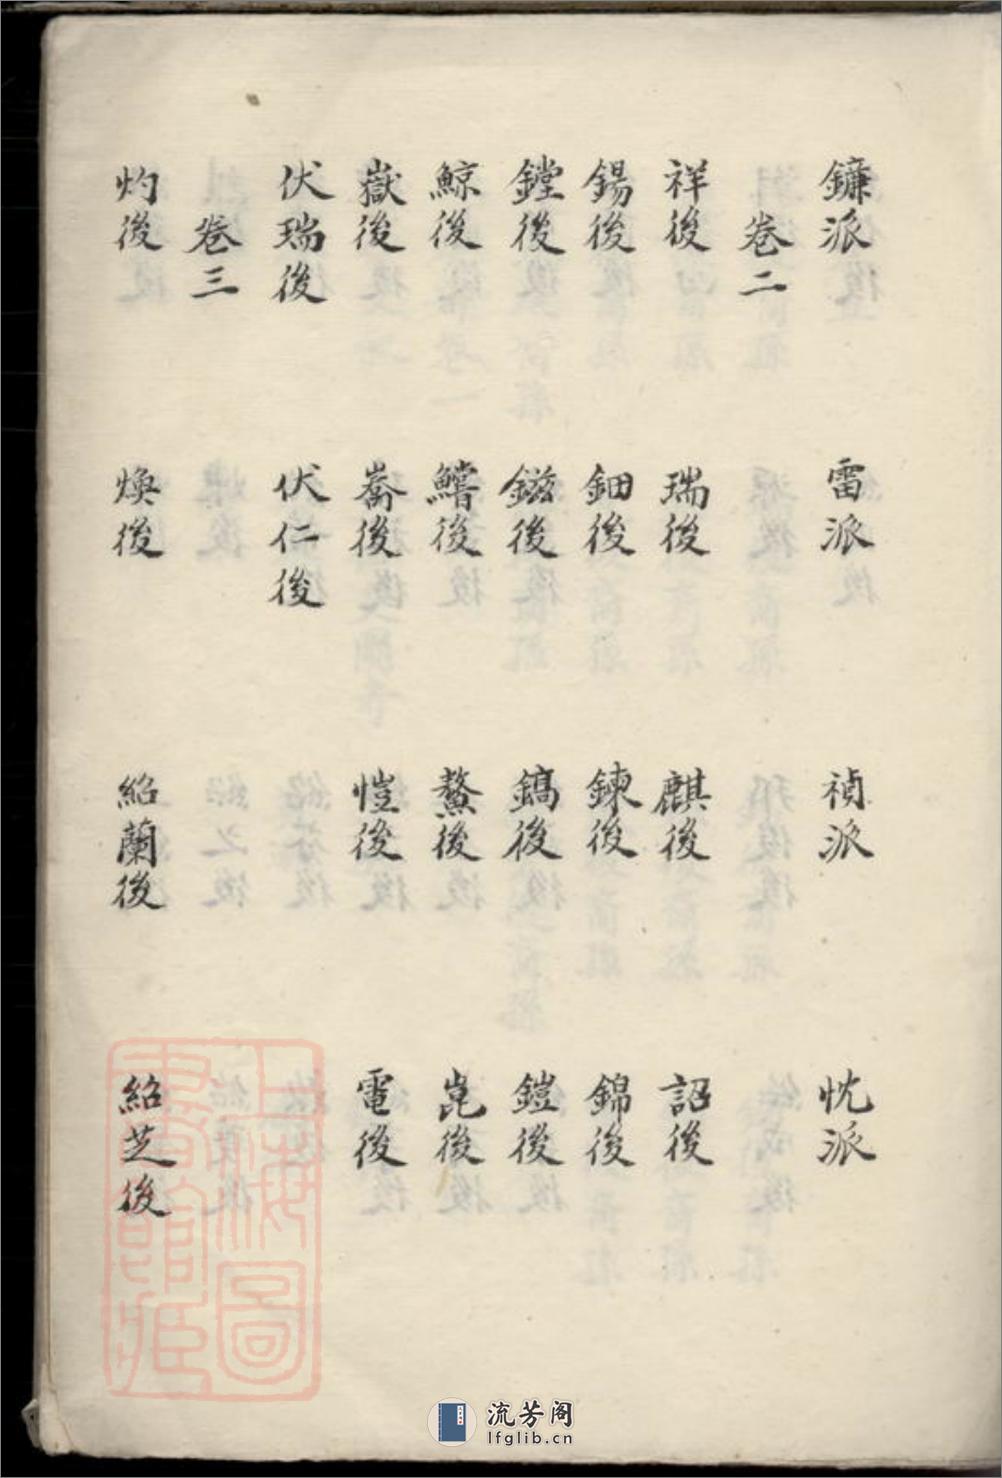 鐮派 雷派 禎派 忱派
卷二
祥後 瑞後 麒後 詔後
錫後 鈿後 鍊後 錦後
鏜後 鎡後 鎬後 鎧後
鯨後 鱨後 鰲後 崑後
嶽後 嵛後 愷後 電後
伏瑞後 伏仁後
卷三
灼後 煥後 紹蘭後 紹芝後
上海圖書館藏
流芳阁
lfglib.cn